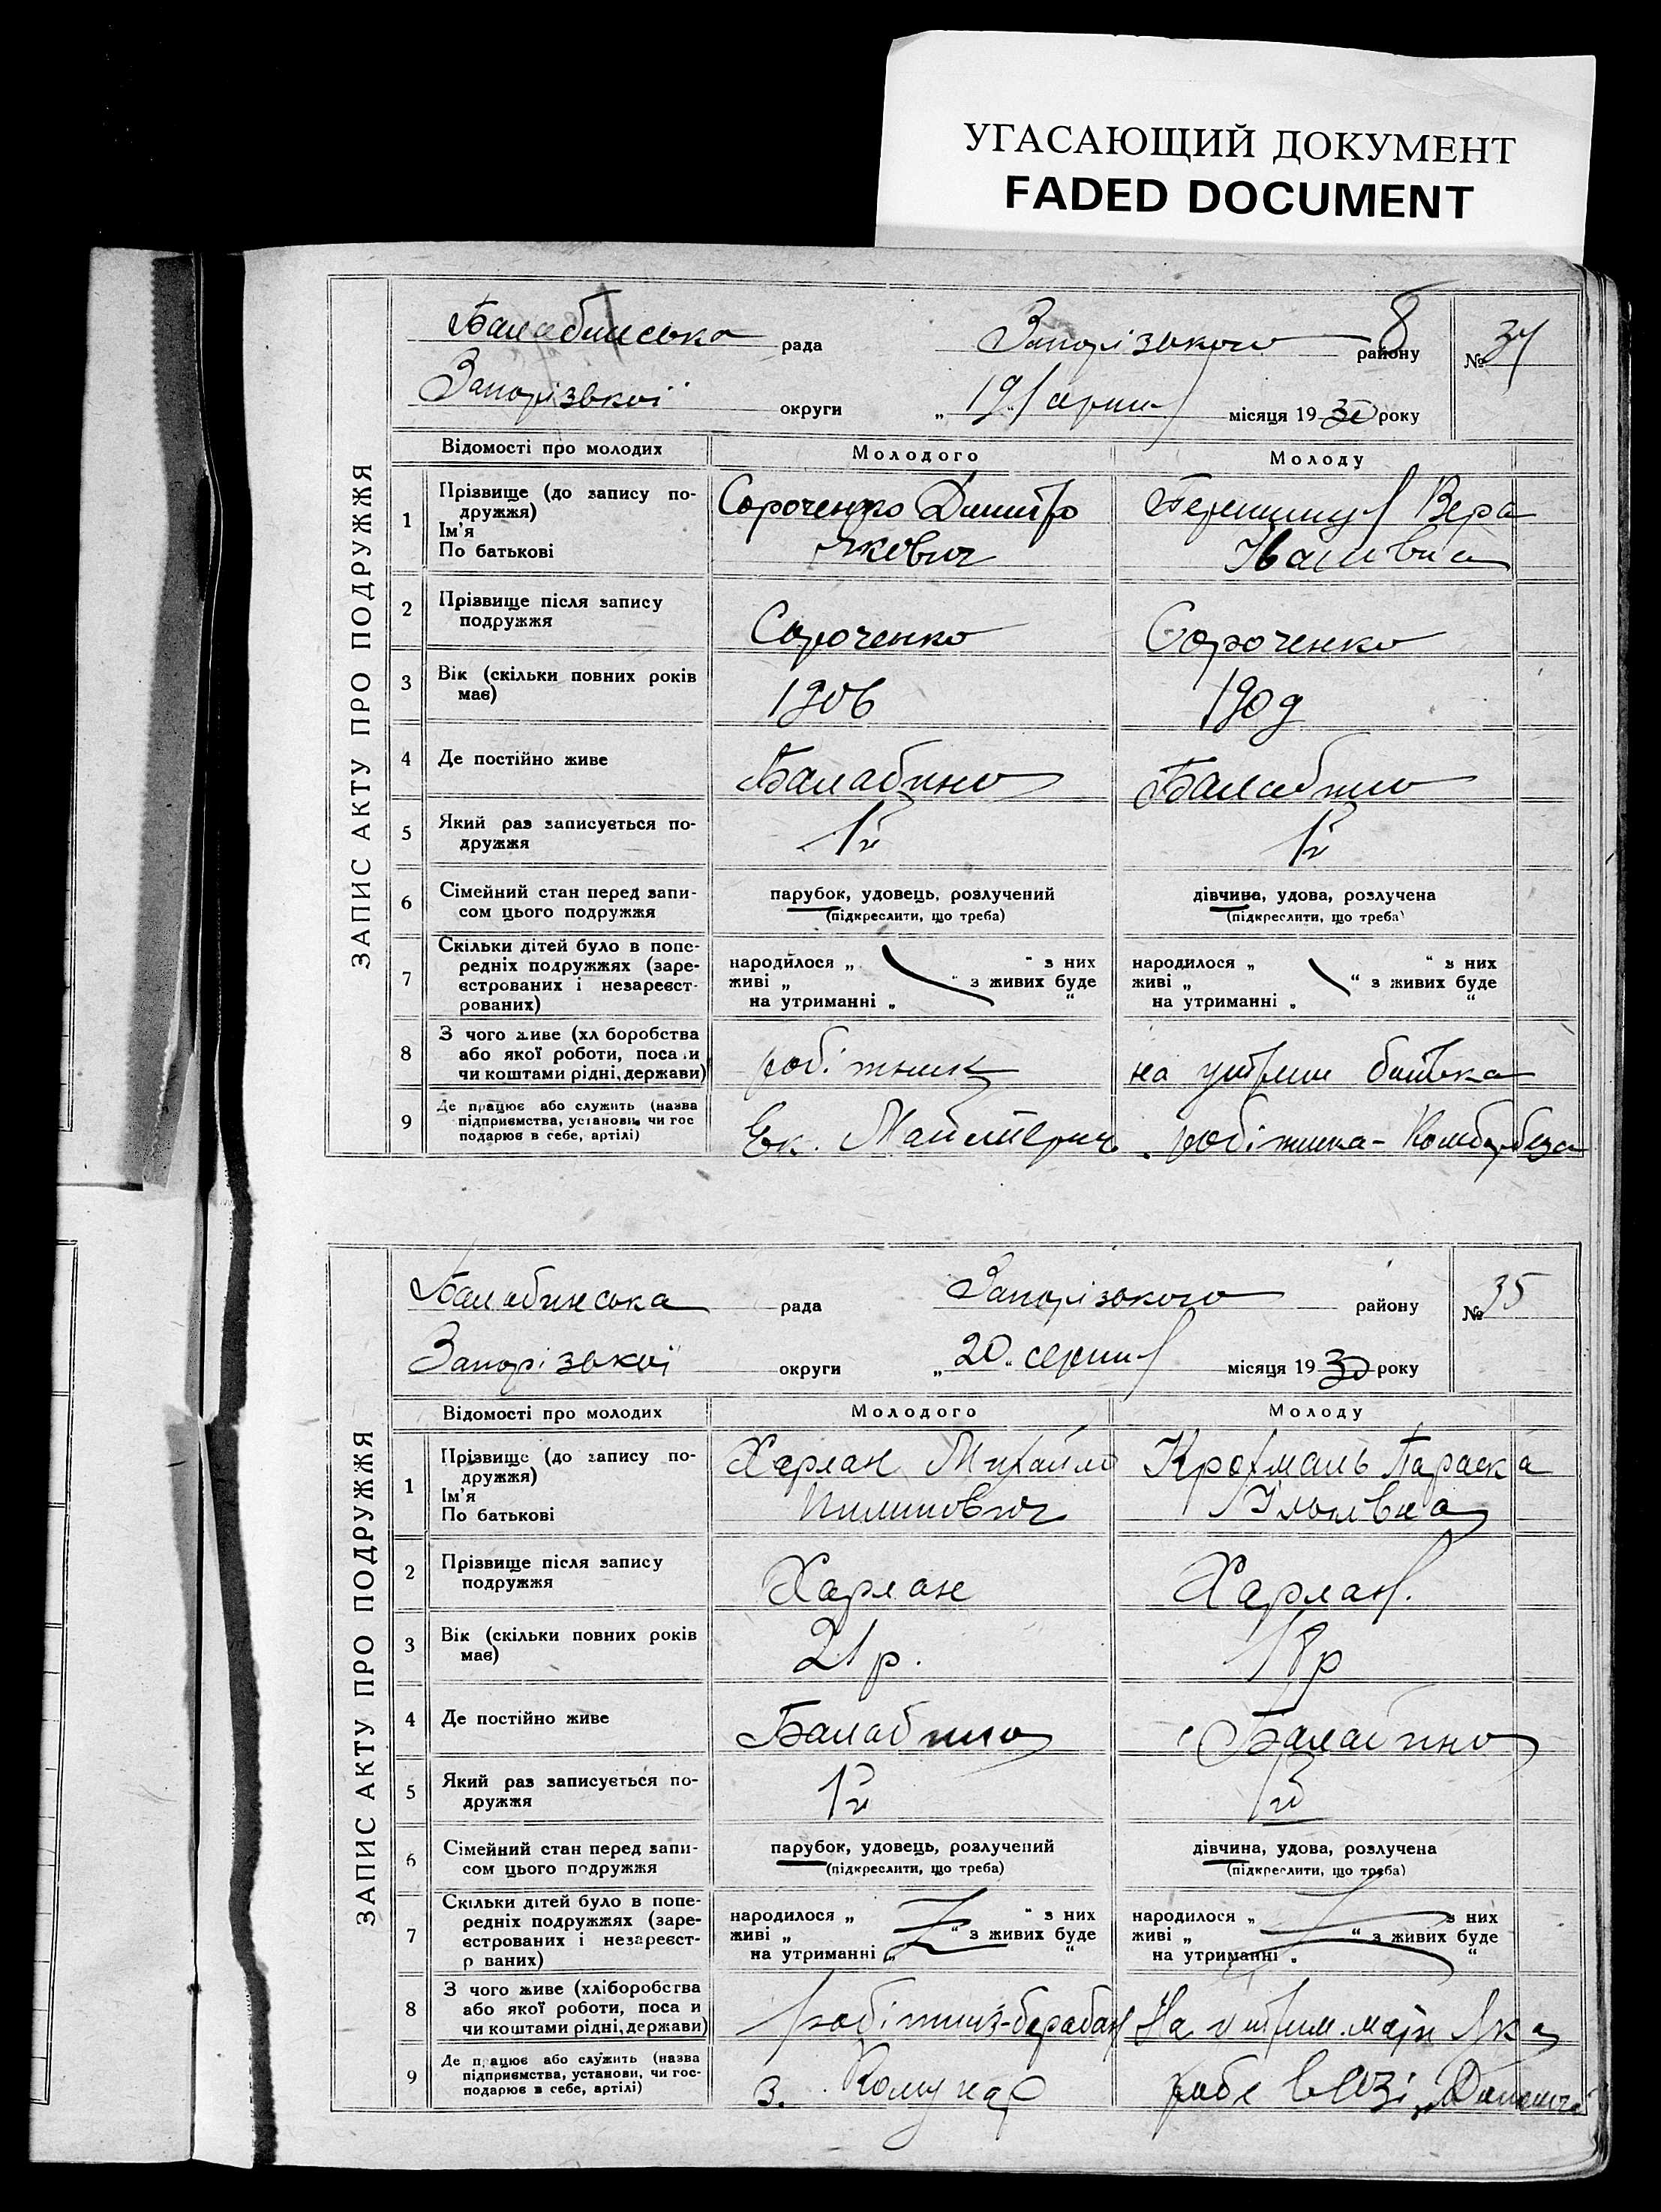 УГАСАЮЩИЙ ДОКУМЕНТ
FADED DOCUMENT
ЗАПИС АКТУ ПРО ПОДРУЖЖЯ
Балабинська рада Запорізького району 8 № 34
Запорізької округи „ 19 " серпня місяця 19 30 року
Відомості про молодих Молодого Молоду
1 Прізвище (до запису по- Сороченко Дмитро Вера
дружжя)
Ім'я
По батькові Якович Іванівна
2 Прізвище після запису
подружжя Сороченко Сороченко
3 Вік (скільки повних років
має) 1906 1909
4 Де постійно живе Балабино Балабино
5 Який раз записується по-
дружжя 1й 1й
6 Сімейний стан перед запи- парубок, удовець, розлучений дівчина, удова, розлучена
сом цього подружжя (підкреслити, що треба) (підкреслити, що треба)
7 Скільки дітей було в попе-
редніх подружжях (заре- народилося „ “ з них народилося „ “ з них
єстрованих і незареєст- живі „ “ з живих буде живі „ “ з живих буде
рованих) на утриманні „ “ на утриманні „ “
8 З чого живе (хл боробства
або якої роботи, поса и робітник на утрим батька
чи коштами рідні, держави)
9 Де працює або служить (назва
підприємства, установи, чи гос Ек. робітника-
подарює в себе, артілі)
ЗАПИС АКТУ ПРО ПОДРУЖЖЯ
Балабинська рада Запорізького району № 35
Запорізької округи „ 20 " серпня місяця 19 30 року
Відомості про молодих Молодого Молоду
1 Прізвище (до запису по- Харлан Михайло Крохмаль Параска
дружжя)
Ім'я
По батькові Пилипович Іллівна
2 Прізвище після запису
подружжя Харлан Харлан.
3 Вік (скільки повних років
має) 21 р. 18 р
4 Де постійно живе Балабино Балабино
5 Який раз записується по-
дружжя 1й 1й
6 Сімейний стан перед запи- парубок, удовець, розлучений дівчина, удова, розлучена
сом цього подружжя (підкреслити, що треба) (підкреслити, що треба)
7 Скільки дітей було в попе-
редніх подружжях (заре- народилося „ “ з них народилося „ з них
єстрованих і незареєст- живі „ “ з живих буде живі „ “ з живих буде
р ваних) на утриманні „ “ на утриманні „ “
8 З чого живе (хліборобства
або якої роботи, поса и На утрим.
чи коштами рідні, держави)
9 Де п ацює або служить (назва
підприємства, установи, чи гос- з. Комунар
подарює в себе, артілі)